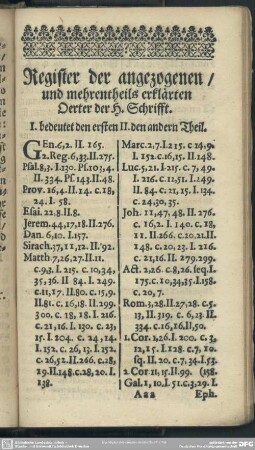 Register der angezogenen /
und mehrentheils erklärten
Oerter der H. Schrifft.
I. bedeutet den ersten II. den andern Theil.
GEn. 6,2. II. 165.
2. Reg. 6,33. II. 275.
Psal. 8,3. I. 130. Pf. 103,4.
II. 334. Pf. 143. II. 48.
Prov. 16,4. II. 14. c. 18,
24. I. 58.
Esai. 22. 8. II. 8.
Jerem. 44,17,18. II. 276.
Dan. 6,10. I. 157.
Sirach. 37,11,12. II. 92.
Matth. 7,16,27. II. 11.
c. 9,3. I. 215. c. 10,34,
35, 36. II 84. I. 249.
c. 11,17. II. 80. c. 15,9.
II. 81. c. 16,18. II. 299.
300. c. 18, 18. I. 216.
c. 21,16. I. 130. c. 23,
15. I. 204. c. 24, 14.
I. 152. c. 26, 13. I. 152
c. 26,52. II. 266. c. 28,
19. II. 148. c. 28, 20. I.
138.
Marc. 2,7. I. 215. c. 14,9.
I. 152. c. 16,15. II. 148.
Luc. 5,21. I. 215. c. 7, 49.
I. 216. c. 11,51. I. 149.
II. 84. c. 21, 15. I. 134.
c. 24,30,35.
Joh. 11,47, 48. II. 276.
c. 16,2. I. 140. c. 18,
11. II. 266. c. 10. 21. II.
148. c. 20, 23. I. 216.
c. 21,16. II. 279. 299.
Act. 2,26. c. 8,26. seq. I.
175. c. 10,34,15. I. 158.
c. 20, 7.
Rom. 3,28. II. 27. 28. c. 5.
13, II. 319. c. 6,23. II.
334. c. 16,16. II, 50.
1. Cor. 1,26. I. 200. c. 3,
12,15. I. 128. c. 7, 10.
sq. II. 20. c. 7, 34. I. 53.
2 Cor. 11, 15. II. 99. (158.
Gal. 1, 10, I. 51. c. 3, 29. I.
Aaa Eph.